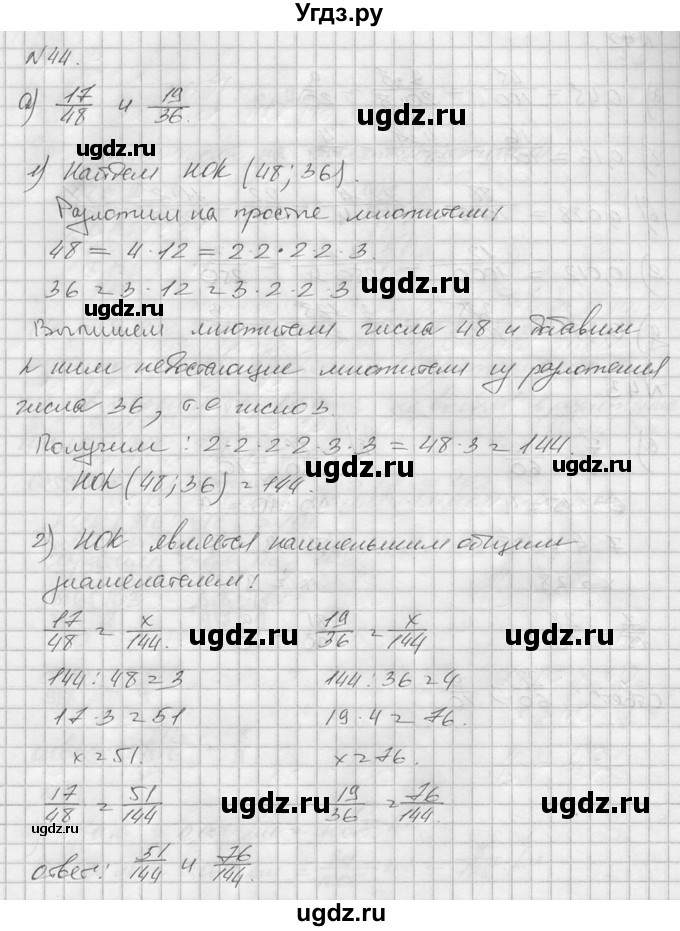 Угдз.ру
N44.
а) 17/48 и 19/36.
ugdz.ru
ugdz.ru
1) Найдем НОК (48; 36).
Разложим на простые множители:
48 = 4·12 = 2·2·2·2·3.
ugdz.ru
36 = 3·12 = 3·2·2·3
ugdz.ru
Выпишем множители числа 48 и добавим
к ним недостающие множители из разложения
числа 36, т.е число 3.
Получим: 2·2·2·2·3·3 = 48·3 = 144.
ugdz.ru
НОК(48; 36) = 144.
2) НОК является наименьшим общим
знаменателем:
17/48 = x/144. 19/36 = x/144
ugdz.ru ugdz.ru
144 : 48 = 3 144 : 36 = 4
17·3 = 51 19·4 = 76.
x = 51. x = 76.
17/48 = 51/144 19/36 = 76/144.
ugdz.ru ugdz.ru
ugdz.ru
Ответ: 51/144 и 76/144.
ugdz.ru
ugdz.ru